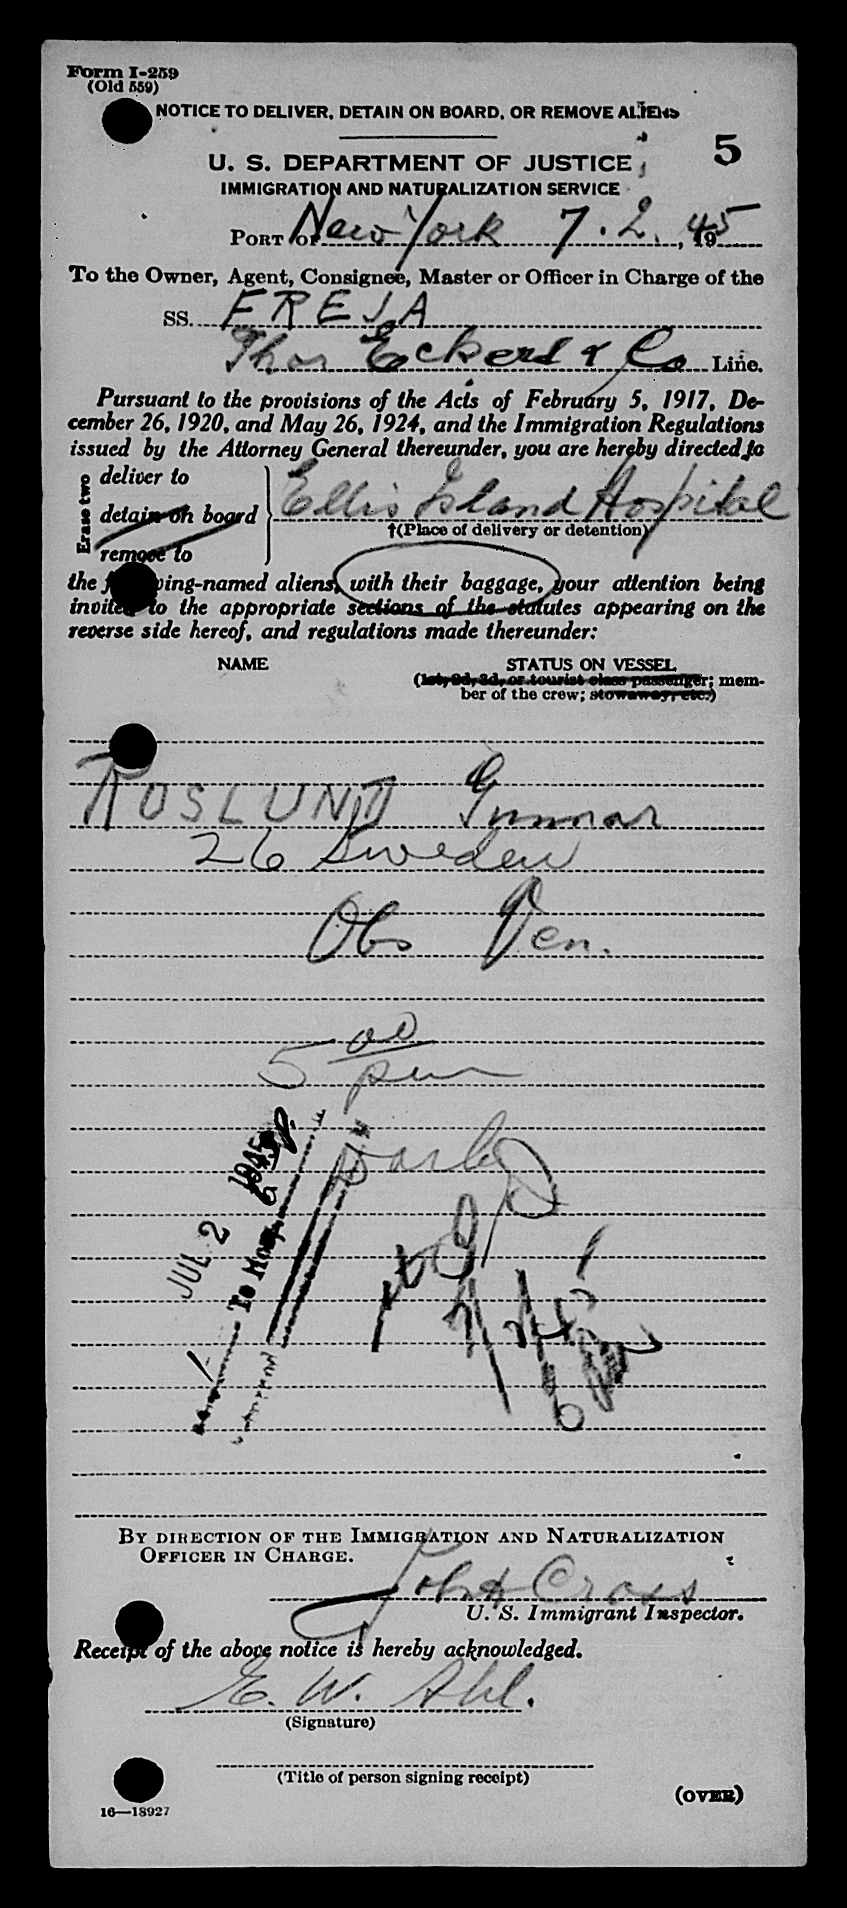 Form I-259
(Old 559)
NOTICE TO DELIVER, DETAIN ON BOARD, OR REMOVE ALIENS
5
U. S. DEPARTMENT OF JUSTICE
IMMIGRATION AND NATURALIZATION SERVICE
PORT OF New York 7.2, 1945
To the Owner, Agent, Consignee, Master or Officer in Charge of the
SS. FREJA
Thor Eckert & Co Line.
Pursuant to the provisions of the Acts of February 5, 1917, De-
cember 26, 1920, and May 26, 1924, and the Immigration Regulations
issued by the Attorney General thereunder, you are hereby directed to
Erase two
deliver to
detain on board
remove to
Ellis Island Hospital
†(Place of delivery or detention)
the following-named aliens, with their baggage, your attention being
invited to the appropriate sections of the statutes appearing on the
reverse side hereof, and regulations made thereunder:
NAME STATUS ON VESSEL
(1st, 2d, 3d, or tourist class passenger; mem-
ber of the crew; stowaway, etc.)
ROSLUND Gunnar
26 Sweden
Obs Ven.
5 00
pm
JUL 2 1945
To Hosp
BY DIRECTION OF THE IMMIGRATION AND NATURALIZATION
OFFICER IN CHARGE.
John Cross
U. S. Immigrant Inspector.
Receipt of the above notice is hereby acknowledged.
E. W. Ahl.
(Signature)
(Title of person signing receipt)
(OVER)
16—18927